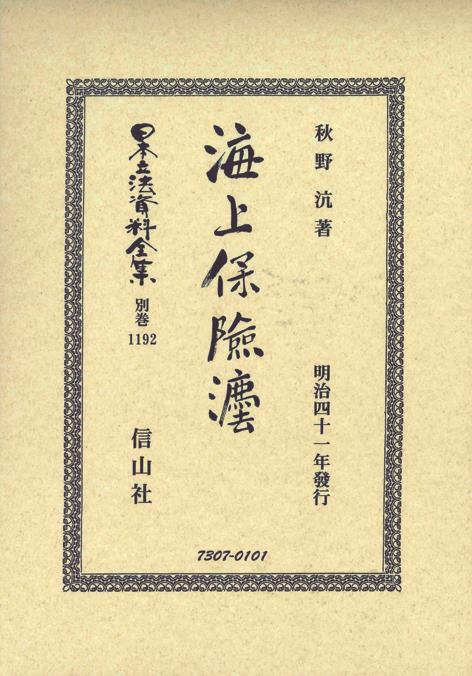 秋野沆著
明治四十一年發行
海上保險灋
日本立法資料全集
別巻
1192
信山社
7307-0101